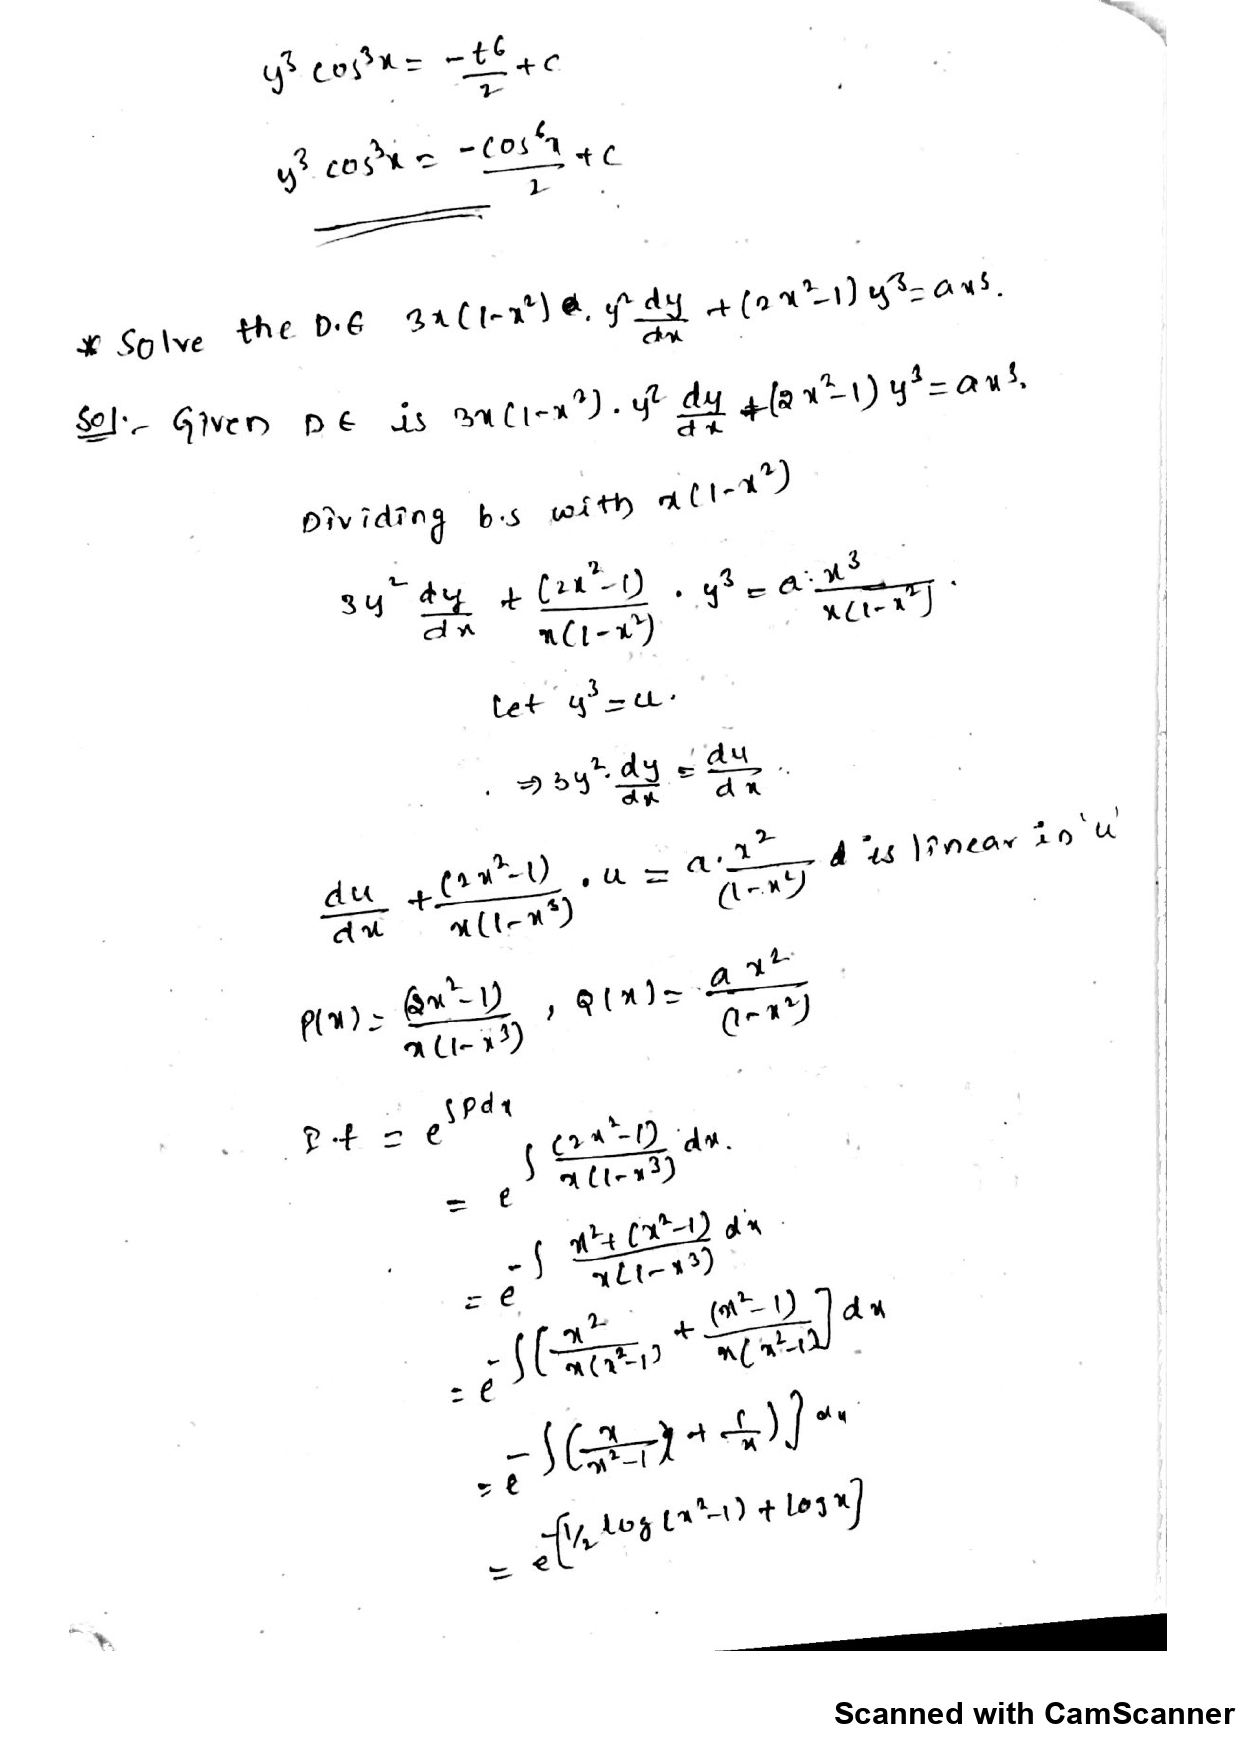 y³ cos³x = -t6/2 + c
y³ cos³x = -cos⁶x/2 + c
* Solve the D.E 3x(1-x²) . y² dy/dx + (2x²-1) y³ = ax³.
Sol:- Given DE is 3x(1-x²) . y² dy/dx + (2x²-1) y³ = ax³.
Dividing b.s with x(1-x²)
3y² dy/dx + (2x²-1)/x(1-x²) . y³ = a. x³/x(1-x²) .
Let y³ = u.
⇒ 3y². dy/dx = du/dx .
du/dx + (2x²-1)/x(1-x³) . u = a. x²/(1-x²) is linear in 'u'
P(x) = (2x²-1)/x(1-x³) , Q(x) = a x²/(1-x²)
I.f = e^∫Pdx
= e^∫ (2x²-1)/x(1-x³) dx.
= e^-∫ x²+(x²-1)/x(1-x³) dx
= e^-∫[x²/x(x²-1) + (x²-1)/x(x²-1)] dx
= e^-∫(x/x²-1) + 1/x)] dx
= e^-[1/2 log(x²-1) + log x]
Scanned with CamScanner